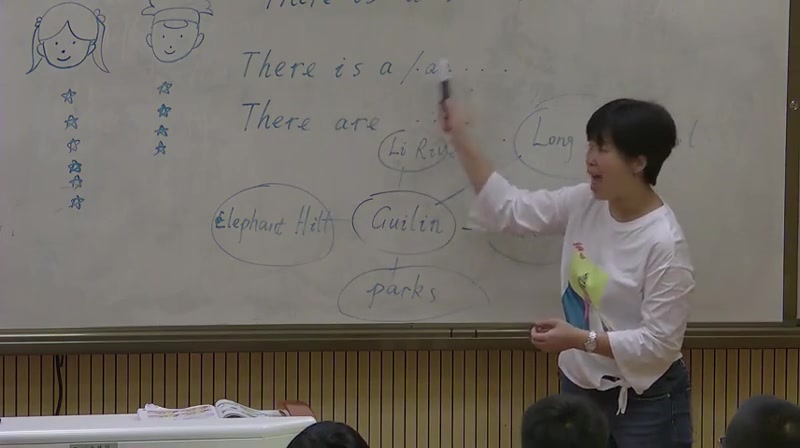 There is a
There is a / a.....
There are .....
Li River
Long
Elephant Hill
Guilin
parks